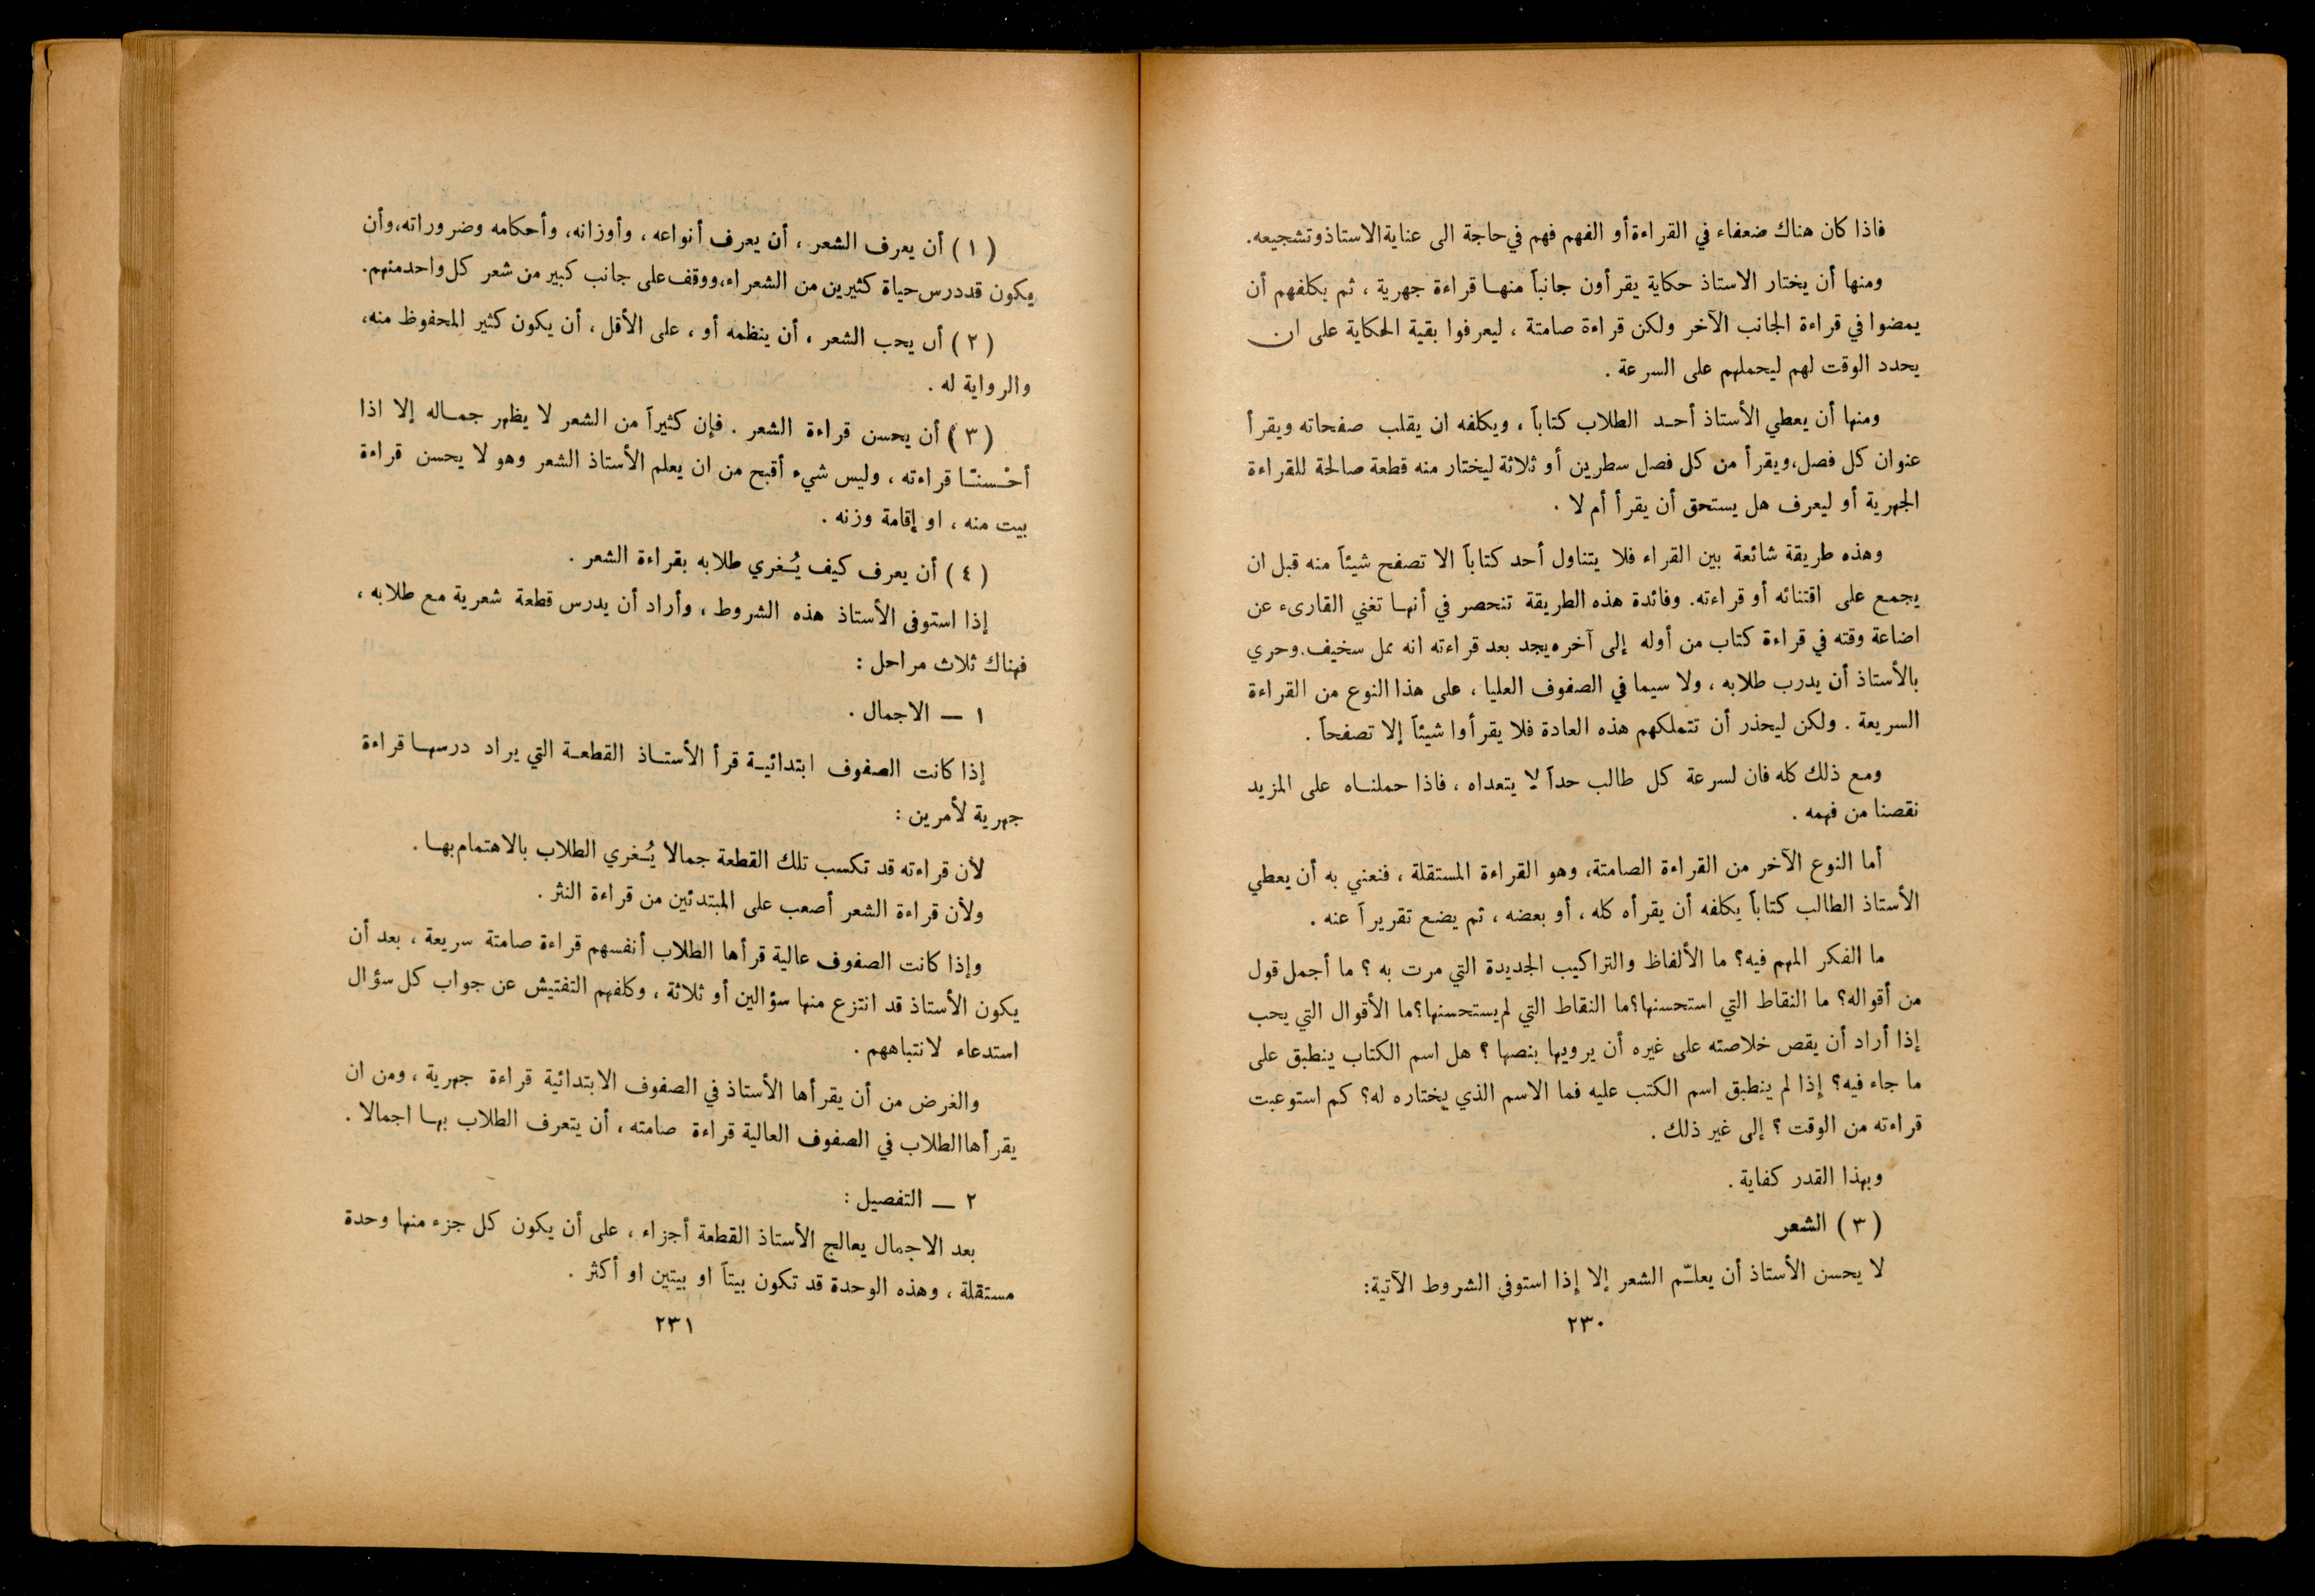 فاذا كان هناك ضعفاء في القراءة أو الفهم فهم في حاجة الى عناية الاستاذ وتشجيعه.
ومنها أن يختار الاستاذ حكاية يقرأون جانباً منها قراءة جهرية ، ثم يكلفهم أن
يمضوا في قراءة الجانب الآخر ولكن قراءة صامتة ، ليعرفوا بقية الحكاية على ان
يحدد الوقت لهم ليحملهم على السرعة .
ومنها أن يعطي الأستاذ أحد الطلاب كتاباً ، ويكلفه ان يقلب صفحاته ويقرأ
عنوان كل فصل، ويقرأ من كل فصل سطرين أو ثلاثة ليختار منه قطعة صالحة للقراءة
الجهرية أو ليعرف هل يستحق أن يقرأ أم لا .
وهذه طريقة شائعة بين القراء فلا يتناول أحد كتاباً الا تصفح شيئاً منه قبل ان
يجمع على اقتنائه أو قراءته. وفائدة هذه الطريقة تنحصر في أنها تغني القارىء عن
اضاعة وقته في قراءة كتاب من أوله إلى آخره يجد بعد قراءته انه ممل سخيف. وحري
بالأستاذ أن يدرب طلابه ، ولا سيما في الصفوف العليا ، على هذا النوع من القراءة
السريعة . ولكن ليحذر أن تتملكهم هذه العادة فلا يقرأوا شيئاً إلا تصفحاً .
ومع ذلك كله فان لسرعة كل طالب حداً لا يتعداه ، فاذا حملناه على المزيد
نقصنا من فهمه .
أما النوع الآخر من القراءة الصامتة، وهو القراءة المستقلة ، فنعني به أن يعطي
الأستاذ الطالب كتاباً يكلفه أن يقرأه كله ، أو بعضه ، ثم يضع تقريراً عنه .
ما الفكر المهم فيه؟ ما الألفاظ والتراكيب الجديدة التي مرت به ؟ ما أجمل قول
من أقواله؟ ما النقاط التي استحسنها؟ ما النقاط التي لم يستحسنها؟ ما الأقوال التي يحب
إذا أراد أن يقص خلاصته على غيره أن يرويها بنصها ؟ هل اسم الكتاب ينطبق على
ما جاء فيه؟ إذا لم ينطبق اسم الكتب عليه فما الاسم الذي يختاره له؟ كم استوعبت
قراءته من الوقت ؟ إلى غير ذلك .
وبهذا القدر كفاية .
( ٣ ) الشعر
لا يحسن الأستاذ أن يعلّم الشعر إلا إذا استوفي الشروط الآتية:
٢٣٠
( ١ ) أن يعرف الشعر ، أن يعرف أنواعه ، وأوزانه، وأحكامه وضروراته، وأن
يكون قد درس حياة كثيرين من الشعراء، ووقف على جانب كبير من شعر كل واحد منهم.
( ٢ ) أن يحب الشعر ، أن ينظمه أو ، على الأقل ، أن يكون كثير المحفوظ منه،
والرواية له .
( ٣ ) أن يحسن قراءة الشعر . فإن كثيراً من الشعر لا يظهر جماله إلا اذا
أحْسنّا قراءته ، وليس شيء أقبح من ان يعلم الأستاذ الشعر وهو لا يحسن قراءة
بيت منه ، او إقامة وزنه .
( ٤ ) أن يعرف كيف يُغري طلابه بقراءة الشعر .
إذا استوفى الأستاذ هذه الشروط ، وأراد أن يدرس قطعة شعرية مع طلابه ،
فهناك ثلاث مراحل :
١ — الاجمال .
إذا كانت الصفوف ابتدائية قرأ الأستاذ القطعة التي يراد درسها قراءة
جهرية لأمرين :
لأن قراءته قد تكسب تلك القطعة جمالا يُغري الطلاب بالاهتمام بها .
ولأن قراءة الشعر أصعب على المبتدئين من قراءة النثر .
وإذا كانت الصفوف عالية قرأها الطلاب أنفسهم قراءة صامتة سريعة ، بعد أن
يكون الأستاذ قد انتزع منها سؤالين أو ثلاثة ، وكلفهم التفتيش عن جواب كل سؤال
استدعاء لانتباههم .
والغرض من أن يقرأها الأستاذ في الصفوف الابتدائية قراءة جهرية ، ومن ان
يقرأها الطلاب في الصفوف العالية قراءة صامته ، أن يتعرف الطلاب بها اجمالا .
٢ — التفصيل :
بعد الاجمال يعالج الأستاذ القطعة أجزاء ، على أن يكون كل جزء منها وحدة
مستقلة ، وهذه الوحدة قد تكون بيتاً او بيتين او أكثر .
٢٣١